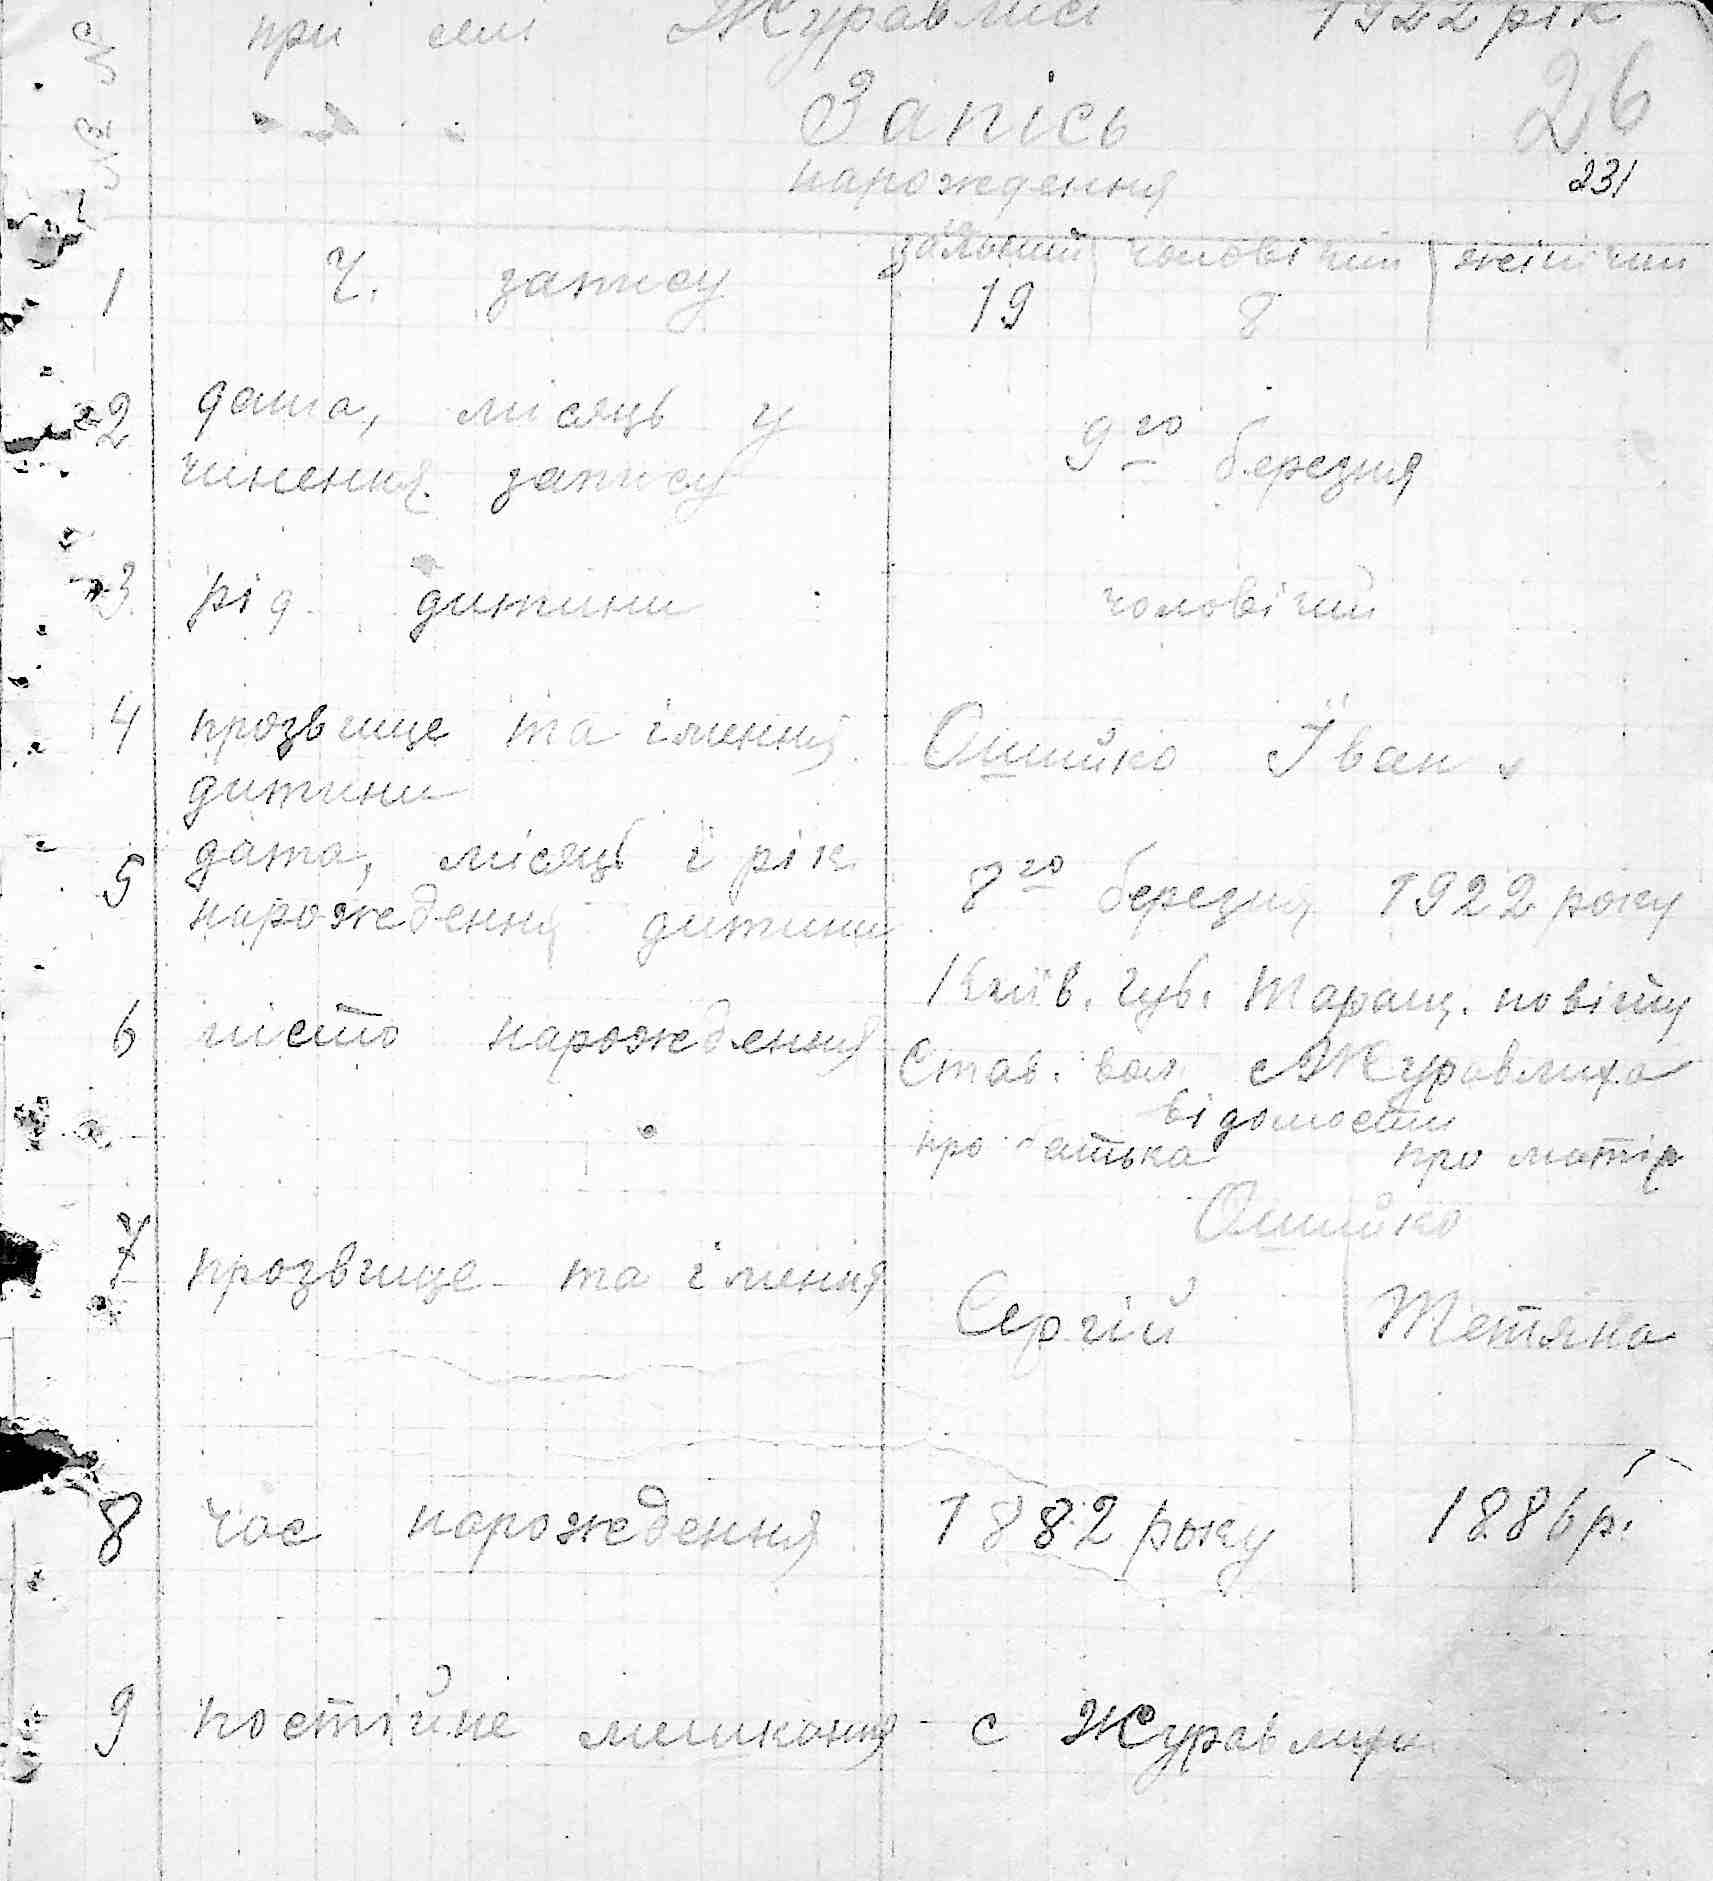 при селі Журавлисі 1922 рік
№№
Запісь
26
нарождення
231
1 Ч. запису загальний чоловічий жіночий
19 8
2 дата, місяць у
чинення запису 9го березня
3 рід дитини чоловічий
4 прозвище та імення Ошийко Їван
дитини
5 дата, місяць і рік
нарождення дитини 8го березня 1922 року
6 місто нарождення Київ. губ. Таращ. повіту
Став. вол. с Журавлиха
відомости
про батька про матір
Ошийко
7 прозвище та імення
Сергій Тетяна
8 час нарождення 1882 року 1886 р.
9 постійне мешкання с Журавлиха